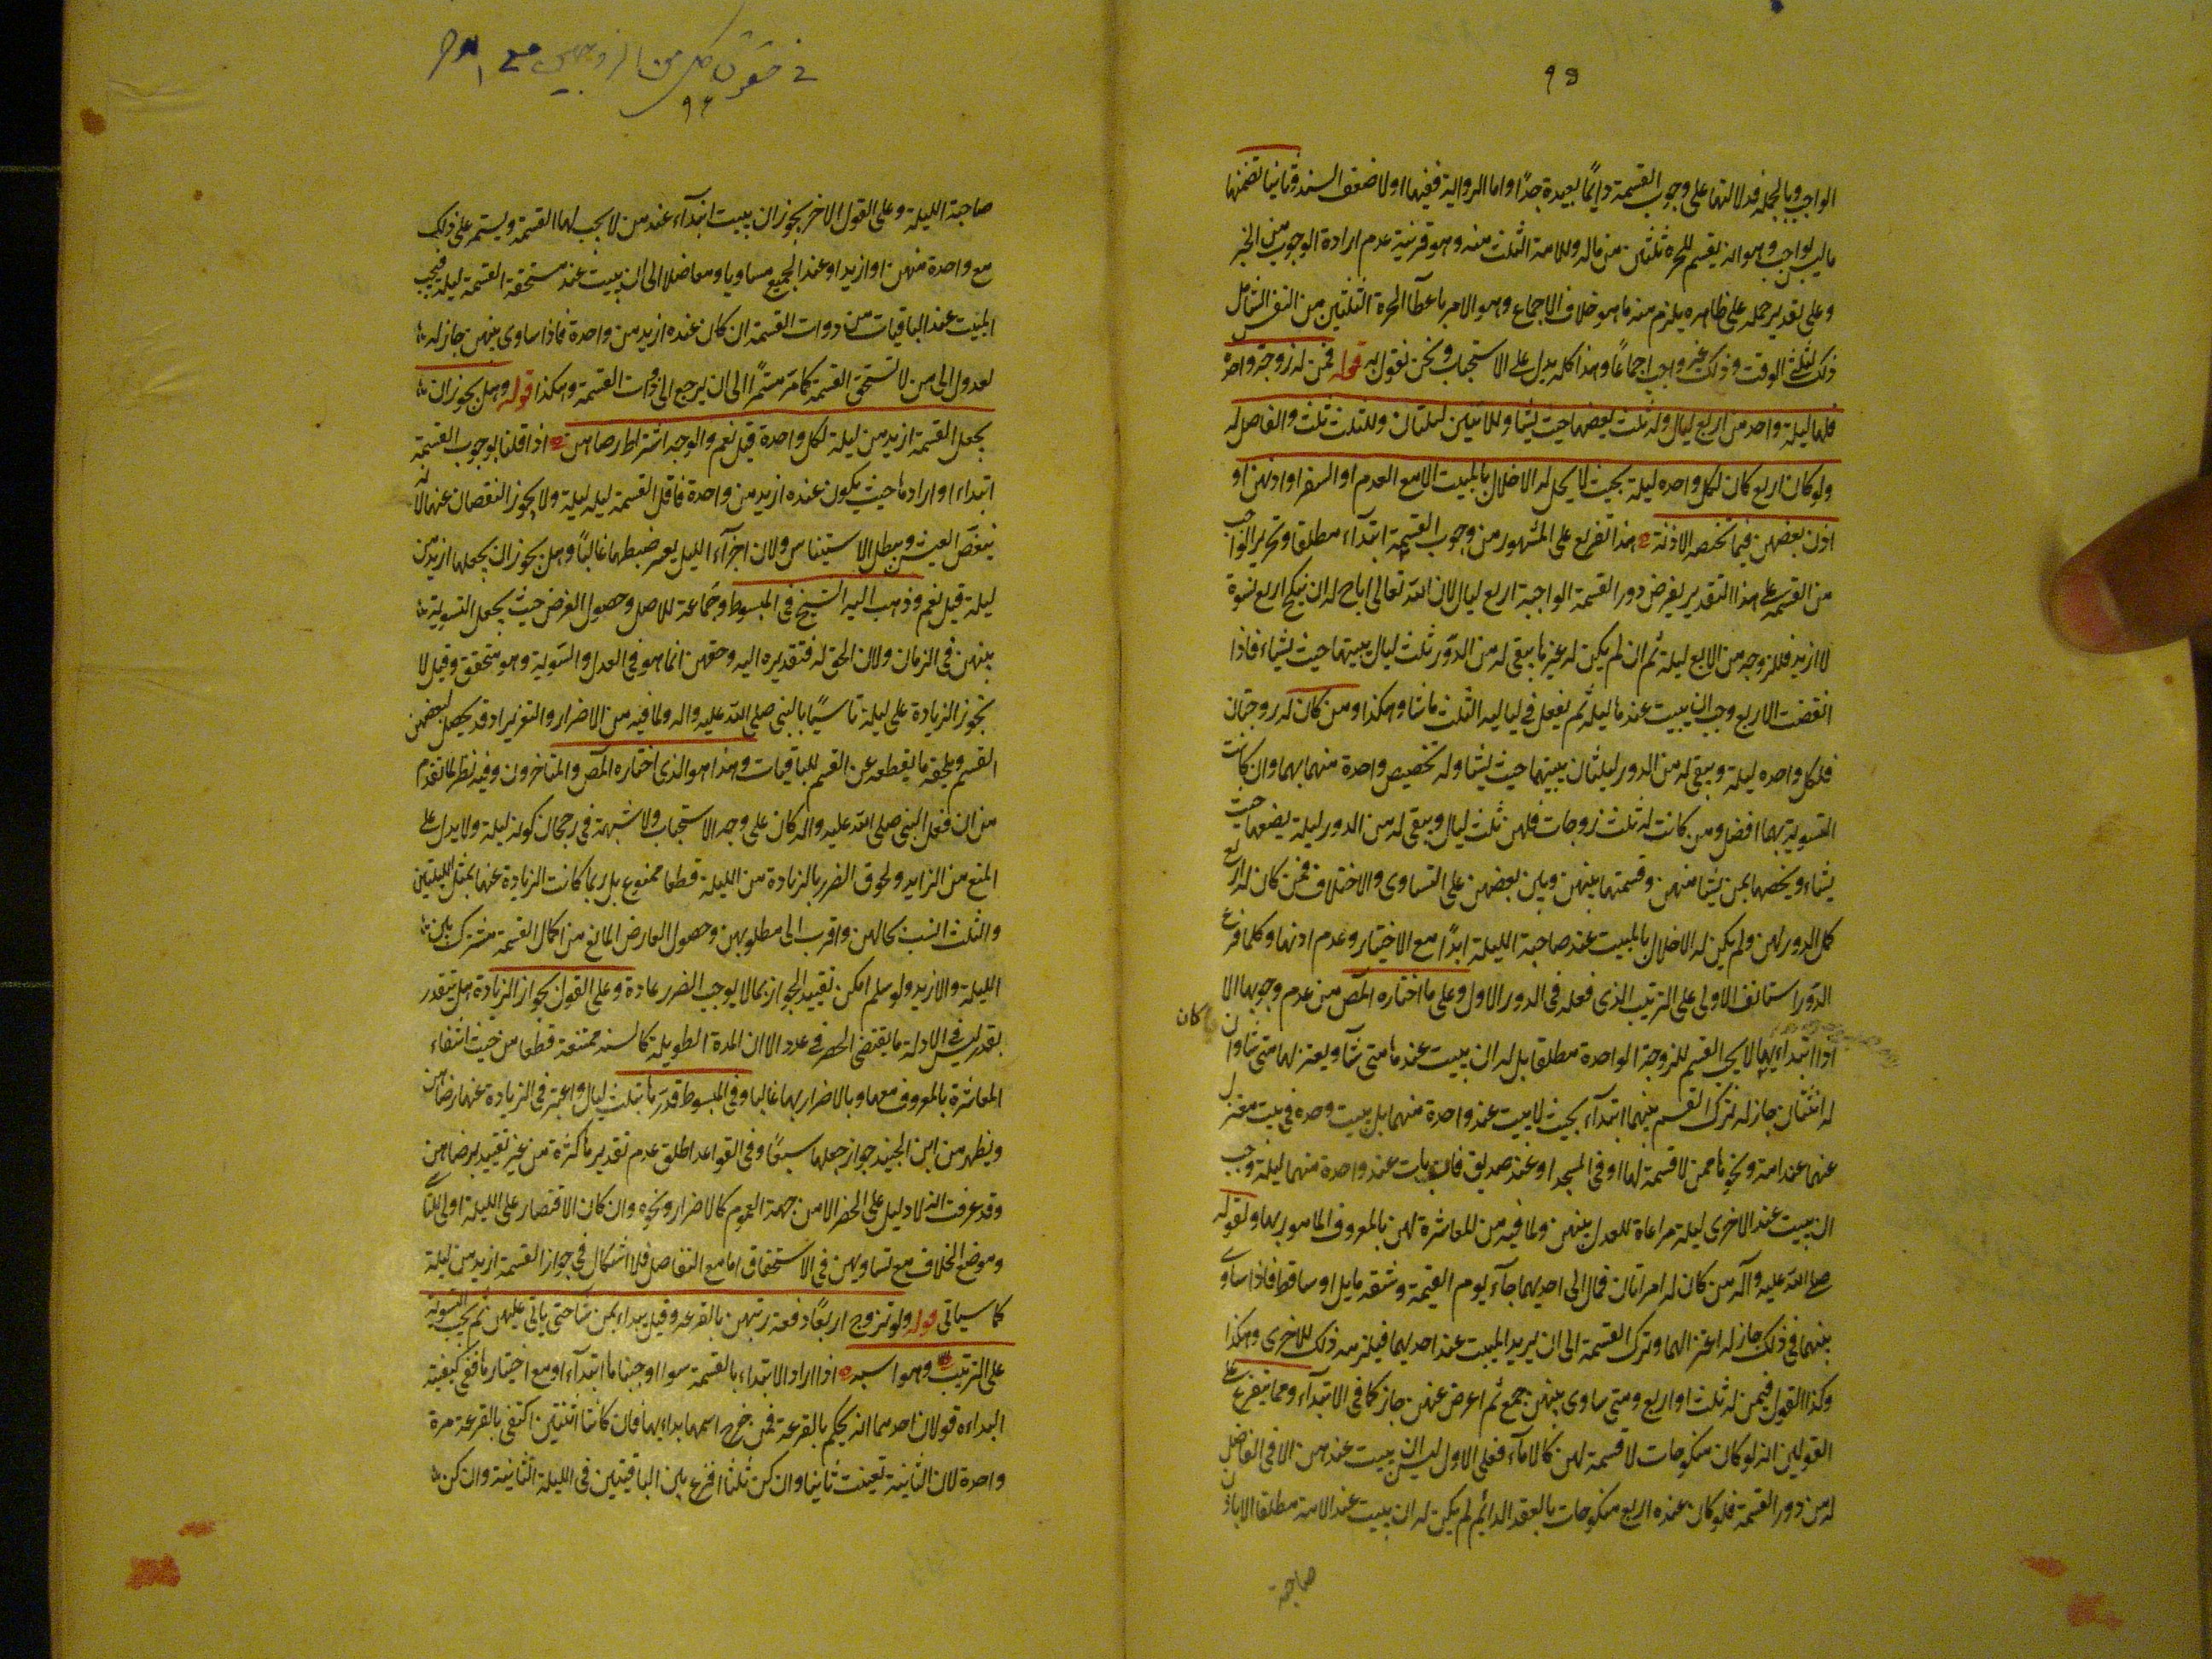 ٩٥
الواجب وبالجملة فدلالتها على وجوب القسمة دايمًا بعيدة جدًا واما الرواية ففيها اولا ضعف السند وثانيا تضمنها
ما ليس بواجب وهو انه يقسم للحرة ثلثين من ماله وللامة الثلث منه وهو قرينة عدم ارادة الوجوب من الخبر
وعلى تقدير حمله على ظاهره يلزم منه ما هو خلاف الاجماع وهو الامر باعطا الحرة الثلثين من النفس الشامل
ذلك لثلثي الوقت وذلك غير واجب اجماعًا وهذا كله يدل على الاستحباب ونحن نقول به قوله فمن له زوجة واحدة
فلها ليلة واحد من اربع ليال وله ثلث يضعها حيث يشا وللاثنين ليلتان وللثلث ثلث والفاضل له
ولو كان اربع كان لكل واحده ليلة بحيث لا يحل له الاخلال بالمبيت الا مع العدم او السفر او اذنهن او
اذن بعضهن فيما تختصه الاذنة هذا تفريع على المشهور من وجوب القسمة ابتدآء مطلقا وتحرير الواجب
من القسمة على هذا التقدير يفرض دور القسمة الواجبة اربع ليال لان الله تعالى اباح له ان ينكح اربع نسوة
لا ازيد فللزوجه من الاربع ليلة ثم ان لم يكن له غيرها يبقى له من الدور ثلث ليال يبيتها حيث يشاء فاذا
انقضت الاربع وجب ان يبيت عندها ليلة ثم يفعل في لياليه الثلث ما شا وهكذا ومن كان له زوجتان
فلكل واحده ليلة ويبقى له من الدور ليلتان يبيتهما حيث يشا وله تخصيص واحدة منهما بهما وان كانت
التسوية بهما افضل ومن كانت له ثلث زوجات فلهن ثلث ليال ويبقى له من الدور ليلة يضعها حيث
يشاء ويخصها بمن يشا منهن وقسمتها بينهن وبين بعضهن على التساوى والاختلاف فمن كان له اربع
كمل الدور لهن ولم يكن له الاخلال بالمبيت عند صاحبة الليلة ابدًا مع الاختيار وعدم اذنها وكلما فرغ
الدور استانف الاولى على الترتيب الذى فعله في الدور الاول وعلى ما اختاره المص من عدم وجوبها الا
كان
اذا ابتداء بها لا يجب القسم للزوجة الواحدة مطلقا بل له ان يبيت عندها متى شآ ويعتزلها متى شا وان
له اثنتان جاز له ترك القسم بينهما ابتدآء بحيث لا يبيت عند واحدة منهما بل يبيت وحده في بيت معتزل
عنهما عند امة ونحوها ممن لا قسمة لها او في المسجد او عند صديق فان بات عند واحدة منهما ليلة وجب
ان يبيت عند الاخرى ليلة مراعاة للعدل بينهن ولما فيه من المعاشرة لهن بالمعروف المامور بها ولقوله
صلى الله عليه وآله من كان له امراتان فمال الى احديهما جآء يوم القيمة وشقه مايل او ساقط فاذا ساوى
بينهما في ذلك جاز له اعتزالهما وترك القسمة الى ان يريد المبيت عند احديهما فيلزمه ذلك للاخرى وهكذا
وكذا القول فيمن له ثلث او اربع ومتى ساوى بينهن جمع ثم اعرض عنهن جاز كما في الابتدآء ومما يتفرع على
القولين انه لو كان منكوحات لا قسمة لهن كالامآء فعلى الاول ليس ان يبيت عندهن الا في الفاضل
له من دور القسمة فلو كان عنده اربع منكوحات بالعقد الدايم لم يكن له ان يبيت عند الامة مطلقا الا باذن
صاحبة
في حقوق كل من الزوجين على الاخر
٩٦
صاحبة الليلة وعلى القول الاخر يجوز ان يبيت ابتدآء عند من لا يجب لها القسمة ويستمر على ذلك
مع واحدة منهن او ازيد او عند الجميع مساويا ومفاضلا الى ان يبيت عند مستحقة القسمة ليلة فيجب
المبيت عند الباقيات من ذوات القسمة ان كان عنده ازيد من واحدة فاذا ساوى بينهن جاز له
لعدول الى من لا تستحق القسمة كما مر مستمرًا الى ان يرجع الى ذوات القسمة وهكذا قوله وهل يجوز ان
يجعل القسمة ازيد من ليلة لكل واحدة قيل نعم والوجه اشتراط رضاهن اذا قلنا بوجوب القسمة
ابتداء او ارادها حيث يكون عنده ازيد من واحدة فاقل القسمة ليلة ليلة ولا يجوز النقصان عنها لانه
ينغص العيش ويبطل الاستيناس ولان اجزآء الليل يعسر ضبطها غالبًا وهل يجوز ان يجعلها ازيد من
ليلة قيل نعم وذهب اليه الشيخ في المبسوط وجماعة للاصل وحصول الغرض حيث يجعل التسوية
بينهن في الزمان ولان الحق له فتقديره اليه وحقهن انما هو في العدل والتسوية وهو متحقق وقيل لا
يجوز الزيادة على ليلة تاسيًا بالنبي صلى الله عليه واله ولما فيه من الاضرار والتغرير اذ قد يحصل لبعضهن
القسم ويلحقه ما يقطعه عن القسم للباقيات وهذا هو الذى اختاره المص والمتاخرون وفيه نظر لما تقدم
من ان فعل النبي صلى الله عليه واله كان على وجه الاستحباب ولا شبهة في رجحان كونه ليلة ولا يدل على
المنع من الزايد ولحوق الضرر بالزيادة من الليلة قطعا ممنوع بل ربما كانت الزيادة عنها بمثل الليلتين
والثلث انسب بحالهن واقرب الى مطلوبهن وحصول العارض المانع من اكمال القسمة مشترك بين
الليلة والازيد ولو سلم امكن تقييد الجواز بما لا يوجب الضرر عادة وعلى القول بجواز الزيادة هل يتقدر
بقدر ليس في الادلة ما يقتضى الحصر في عدد الا ان المدة الطويلة كالسنة ممتنعة قطعا من حيث انتفاء
المعاشرة بالمعروف معها وبالاضرار بها غالبا وفي المبسوط قدرها بثلث ليال واعتبر في الزيادة عنها رضاهن
ويظهر من ابن الجنيد جواز جعلها سبعًا وفي القواعد اطلق عدم تقدير ها كثرة من غير تقييد برضاهن
وقد عرفت انه لا دليل على الحصر الا من جهة العموم كالاضرار ونحوه وان كان الاقتصار على الليلة اولى للتأ
وموضع الخلاف مع تساويهن في الاستحقاق اما مع التفاضل فلا اشكال في جواز القسمة ازيد من ليلة
كما سياتى قوله ولو تزوج اربعًا دفعة رتبهن بالقرعة وقيل يبداء بمن شا حتى ياتى عليهن ثم يجب التسوية
على الترتيب وهو اشبه اذا اراد الابتداء بالقسمة سوا اوجبناها ابتدآء او مع اختيارها ففى كيفية
البداءه قولان احدهما انه يحكم بالقرعة فمن خرج اسمها بداء بها فان كانتا اثنتين اكتفى بالقرعة مرة
واحدة لان الثانية تعينت ثانيا وان كن ثلثا اقرع بين الباقيتين في الليلة الثانية وان كن